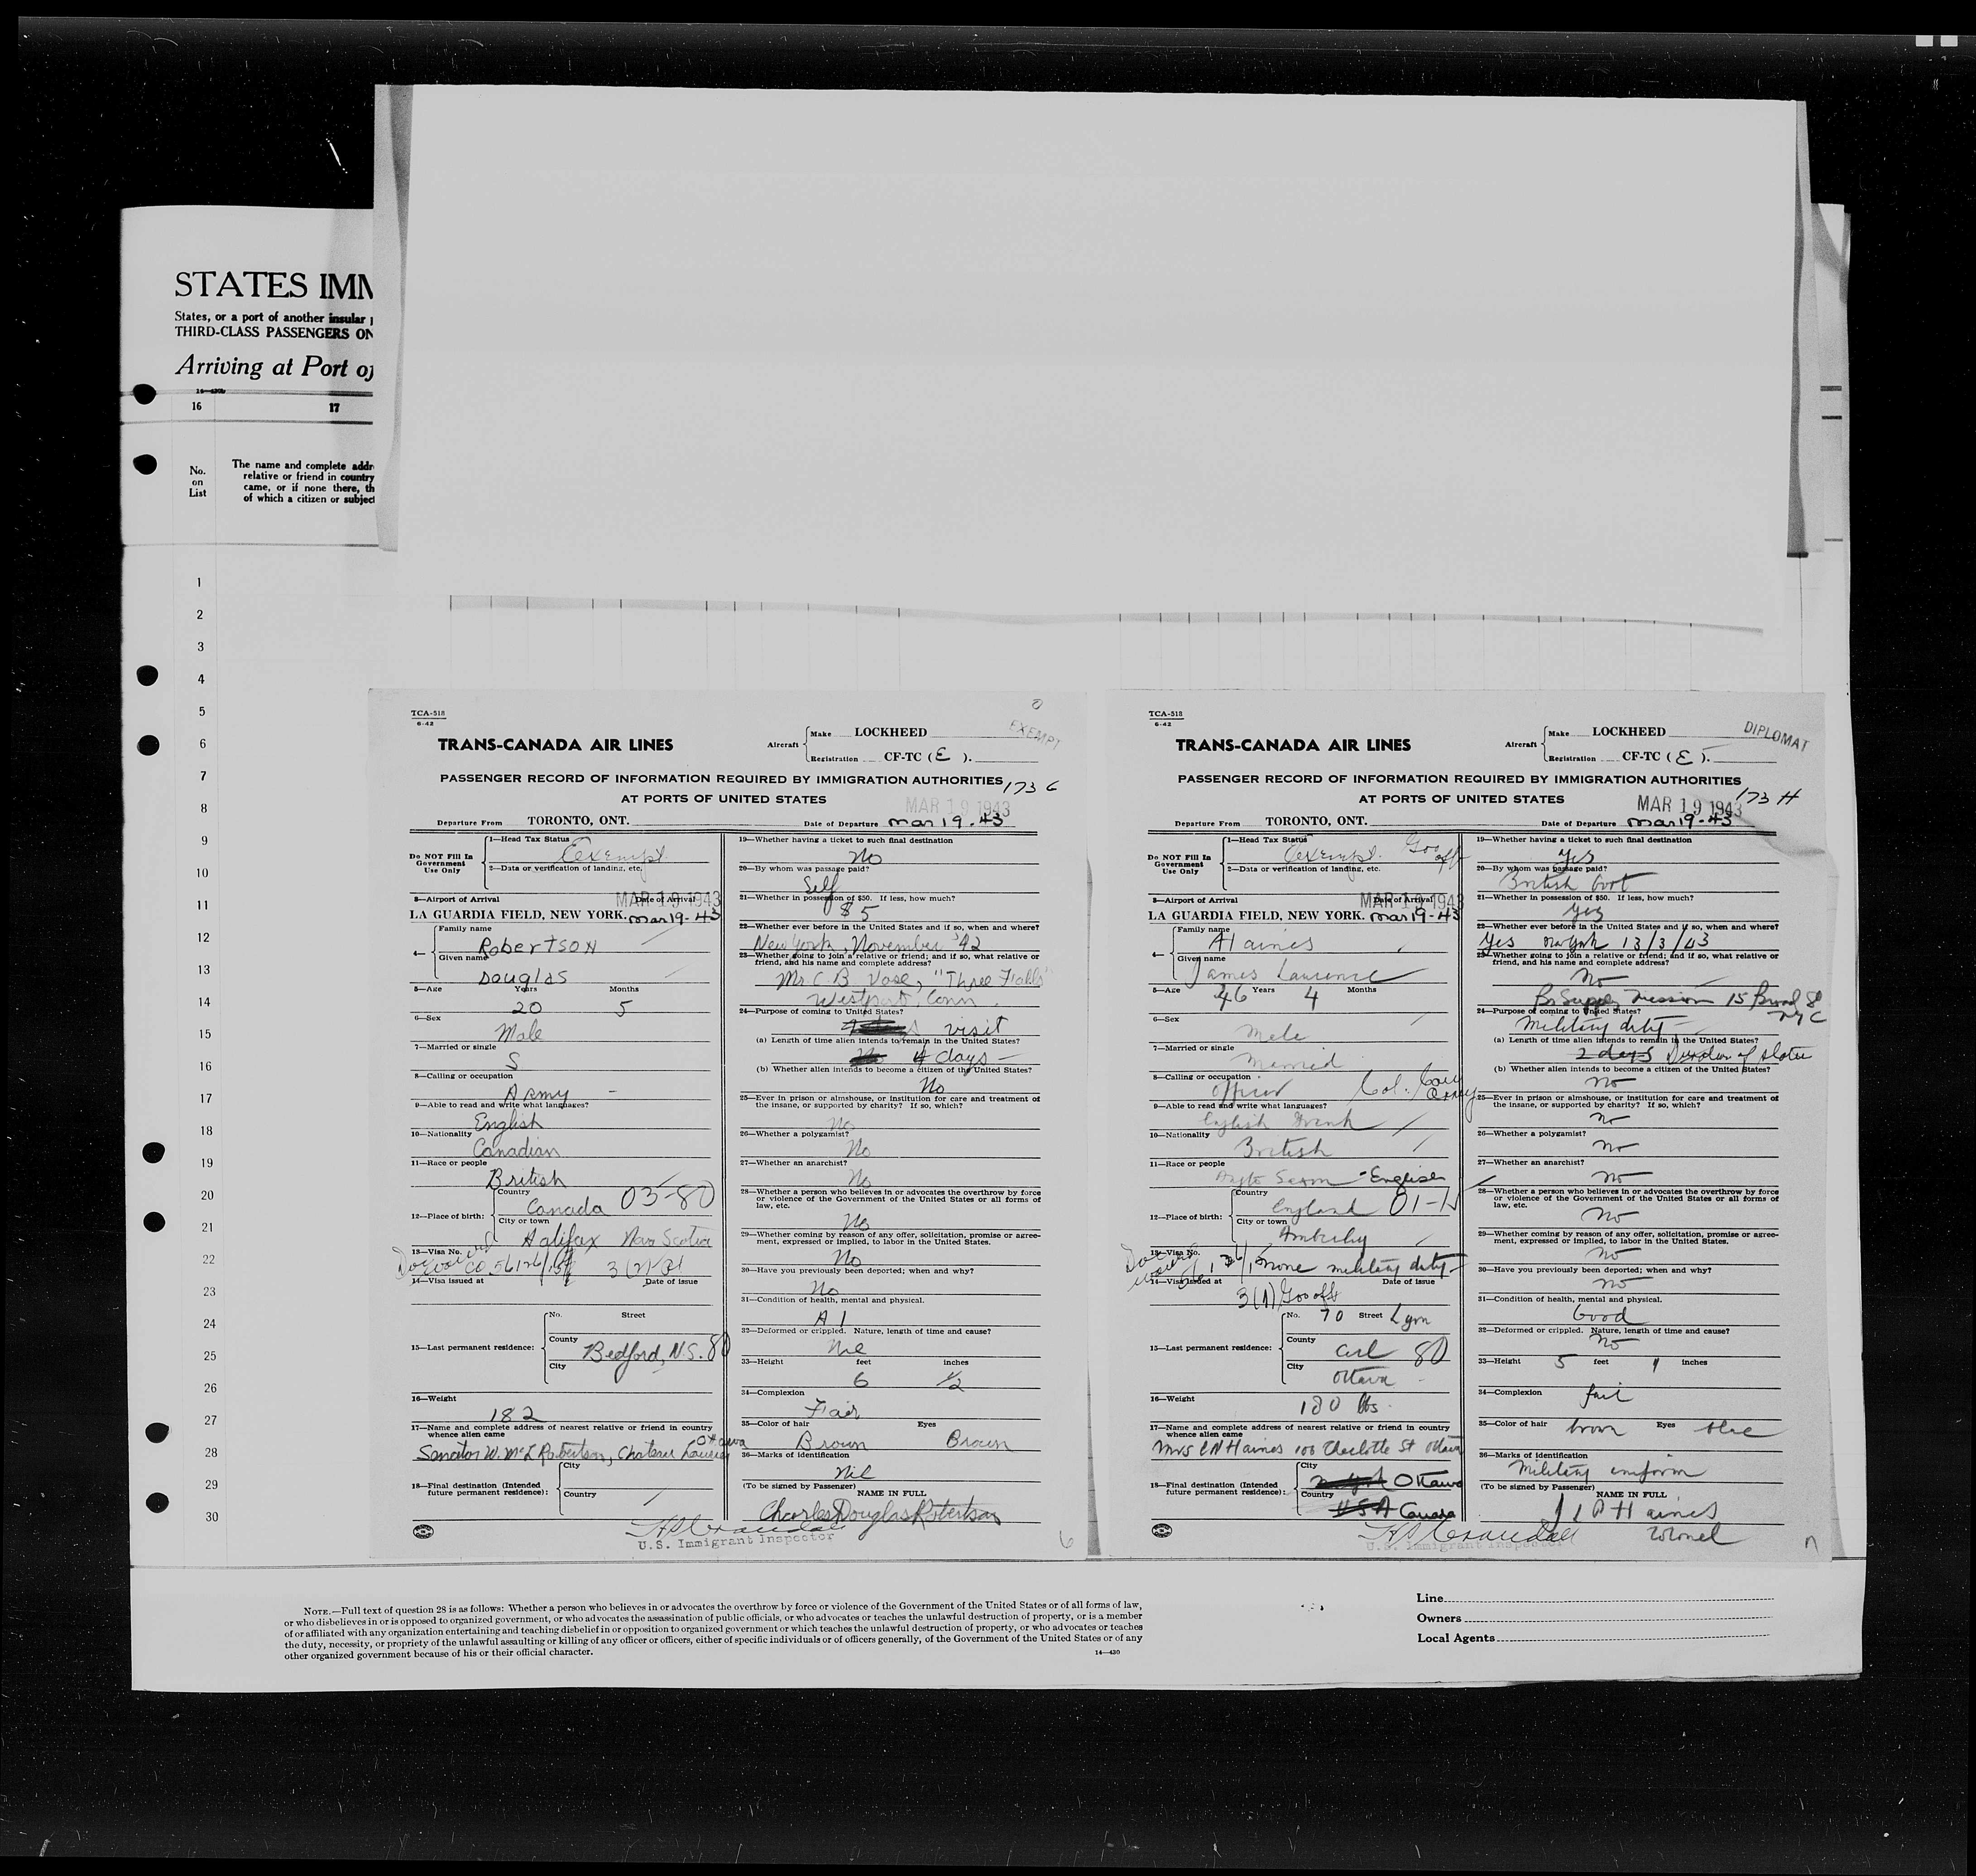 STATES IMM
States, or a port of another insular
THIRD-CLASS PASSENGERS ON
Arriving at Port of
16 17
No. on List
The name and complete addr
relative or friend in country
came, or if none there, th
of which a citizen or subject
1
2
3
4
5
6
7
8
9
10
11
12
13
14
15
16
17
18
19
20
21
22
23
24
25
26
27
28
29
30
TCA-518
6-42
EXEMPT
TRANS-CANADA AIR LINES
Aircraft Make LOCKHEED
Registration CF-TC ( E ).
PASSENGER RECORD OF INFORMATION REQUIRED BY IMMIGRATION AUTHORITIES
173 G
AT PORTS OF UNITED STATES
MAR 19 1943
Departure From TORONTO, ONT. Date of Departure Mar 19-43
Do NOT Fill In Government Use Only
1—Head Tax Status
Exempt
2—Data or verification of landing, etc.
3—Airport of Arrival Date of Arrival
MAR 19 1943
LA GUARDIA FIELD, NEW YORK. Mar 19-43
4— Family name
Robertson
Given name
Douglas
5—Age Years Months
20 5
6—Sex
Male
7—Married or single
S
8—Calling or occupation
Army
9—Able to read and write what languages?
English
10—Nationality
Canadian
11—Race or people
British
12—Place of birth: Country
Canada 03-80
City or town
Halifax Nova Scotia
13—Visa No.
14—Visa issued at Date of issue
15—Last permanent residence: No. Street
County
Bedford, N.S. 80
City
16—Weight
182
17—Name and complete address of nearest relative or friend in country
whence alien came
Ottawa
Senator W. McL Robertson, Chateau Laurier
18—Final destination (Intended
future permanent residence): City
Country
19—Whether having a ticket to such final destination
No
20—By whom was passage paid?
Self
21—Whether in possession of $50. If less, how much?
$5
22—Whether ever before in the United States and if so, when and where?
New York, November '42
23—Whether going to join a relative or friend; and if so, what relative or
friend, and his name and complete address?
Mr. C B Vose, "Three Fields"
Westport, Conn.
24—Purpose of coming to United States?
visit
(a) Length of time alien intends to remain in the United States?
4 days
(b) Whether alien intends to become a citizen of the United States?
No
25—Ever in prison or almshouse, or institution for care and treatment of
the insane, or supported by charity? If so, which?
No
26—Whether a polygamist?
No
27—Whether an anarchist?
No
28—Whether a person who believes in or advocates the overthrow by force
or violence of the Government of the United States or all forms of
law, etc.
No
29—Whether coming by reason of any offer, solicitation, promise or agree-
ment, expressed or implied, to labor in the United States.
No
30—Have you previously been deported; when and why?
No
31—Condition of health, mental and physical.
A1
32—Deformed or crippled. Nature, length of time and cause?
Nil
33—Height feet inches
6 ½
34—Complexion
Fair
35—Color of hair Eyes
Brown Brown
36—Marks of identification
Nil
(To be signed by Passenger) NAME IN FULL
Charles Douglas Robertson
U.S. Immigrant Inspector
6
TCA-518
6-42
DIPLOMAT
TRANS-CANADA AIR LINES
Aircraft Make LOCKHEED
Registration CF-TC ( E ).
PASSENGER RECORD OF INFORMATION REQUIRED BY IMMIGRATION AUTHORITIES
173 H
AT PORTS OF UNITED STATES
MAR 19 1943
Departure From TORONTO, ONT. Date of Departure Mar 19-43
Do NOT Fill In Government Use Only
1—Head Tax Status
Exempt. Gov off
2—Data or verification of landing, etc.
3—Airport of Arrival Date of Arrival
MAR 19 1943
LA GUARDIA FIELD, NEW YORK. Mar 19-43
4— Family name
Haines
Given name
James Laurence
5—Age Years Months
46 4
6—Sex
Male
7—Married or single
Married
8—Calling or occupation
Officer Col.
9—Able to read and write what languages?
English French
10—Nationality
British
11—Race or people
Anglo Saxon - English
12—Place of birth: Country
England
City or town
13—Visa No.
none military duty
14—Visa issued at Date of issue
3(1) Gov off
15—Last permanent residence: No. 70 Street
County
Carl 80
City
Ottawa
16—Weight
180 lbs.
17—Name and complete address of nearest relative or friend in country
whence alien came
Mrs Haines 100 Charlotte St Ottawa
18—Final destination (Intended
future permanent residence): City
Ottawa
Country
USA Canada
19—Whether having a ticket to such final destination
Yes
20—By whom was passage paid?
British Govt
21—Whether in possession of $50. If less, how much?
Yes
22—Whether ever before in the United States and if so, when and where?
Yes New York 13/3/43
23—Whether going to join a relative or friend; and if so, what relative or
friend, and his name and complete address?
No
Br Supply Mission 15 Broad St
NYC
24—Purpose of coming to United States?
Military duty
(a) Length of time alien intends to remain in the United States?
2 days Duration of status
(b) Whether alien intends to become a citizen of the United States?
No
25—Ever in prison or almshouse, or institution for care and treatment of
the insane, or supported by charity? If so, which?
No
26—Whether a polygamist?
No
27—Whether an anarchist?
No
28—Whether a person who believes in or advocates the overthrow by force
or violence of the Government of the United States or all forms of
law, etc.
No
29—Whether coming by reason of any offer, solicitation, promise or agree-
ment, expressed or implied, to labor in the United States.
No
30—Have you previously been deported; when and why?
No
31—Condition of health, mental and physical.
Good
32—Deformed or crippled. Nature, length of time and cause?
No
33—Height 5 feet 11 inches
34—Complexion
fair
35—Color of hair brown Eyes blue
36—Marks of identification
Military uniform
(To be signed by Passenger) NAME IN FULL
Haines
Colonel
U.S. Immigrant Inspector
NOTE.—Full text of question 28 is as follows: Whether a person who believes in or advocates the overthrow by force or violence of the Government of the United States or of all forms of law,
or who disbelieves in or is opposed to organized government, or who advocates the assassination of public officials, or who advocates or teaches the unlawful destruction of property, or is a member
of or affiliated with any organization entertaining and teaching disbelief in or opposition to organized government or which teaches the unlawful destruction of property, or who advocates or teaches
the duty, necessity, or propriety of the unlawful assaulting or killing of any officer or officers, either of specific individuals or of officers generally, of the Government of the United States or of any
other organized government because of his or their official character.
14—430
Line
Owners
Local Agents